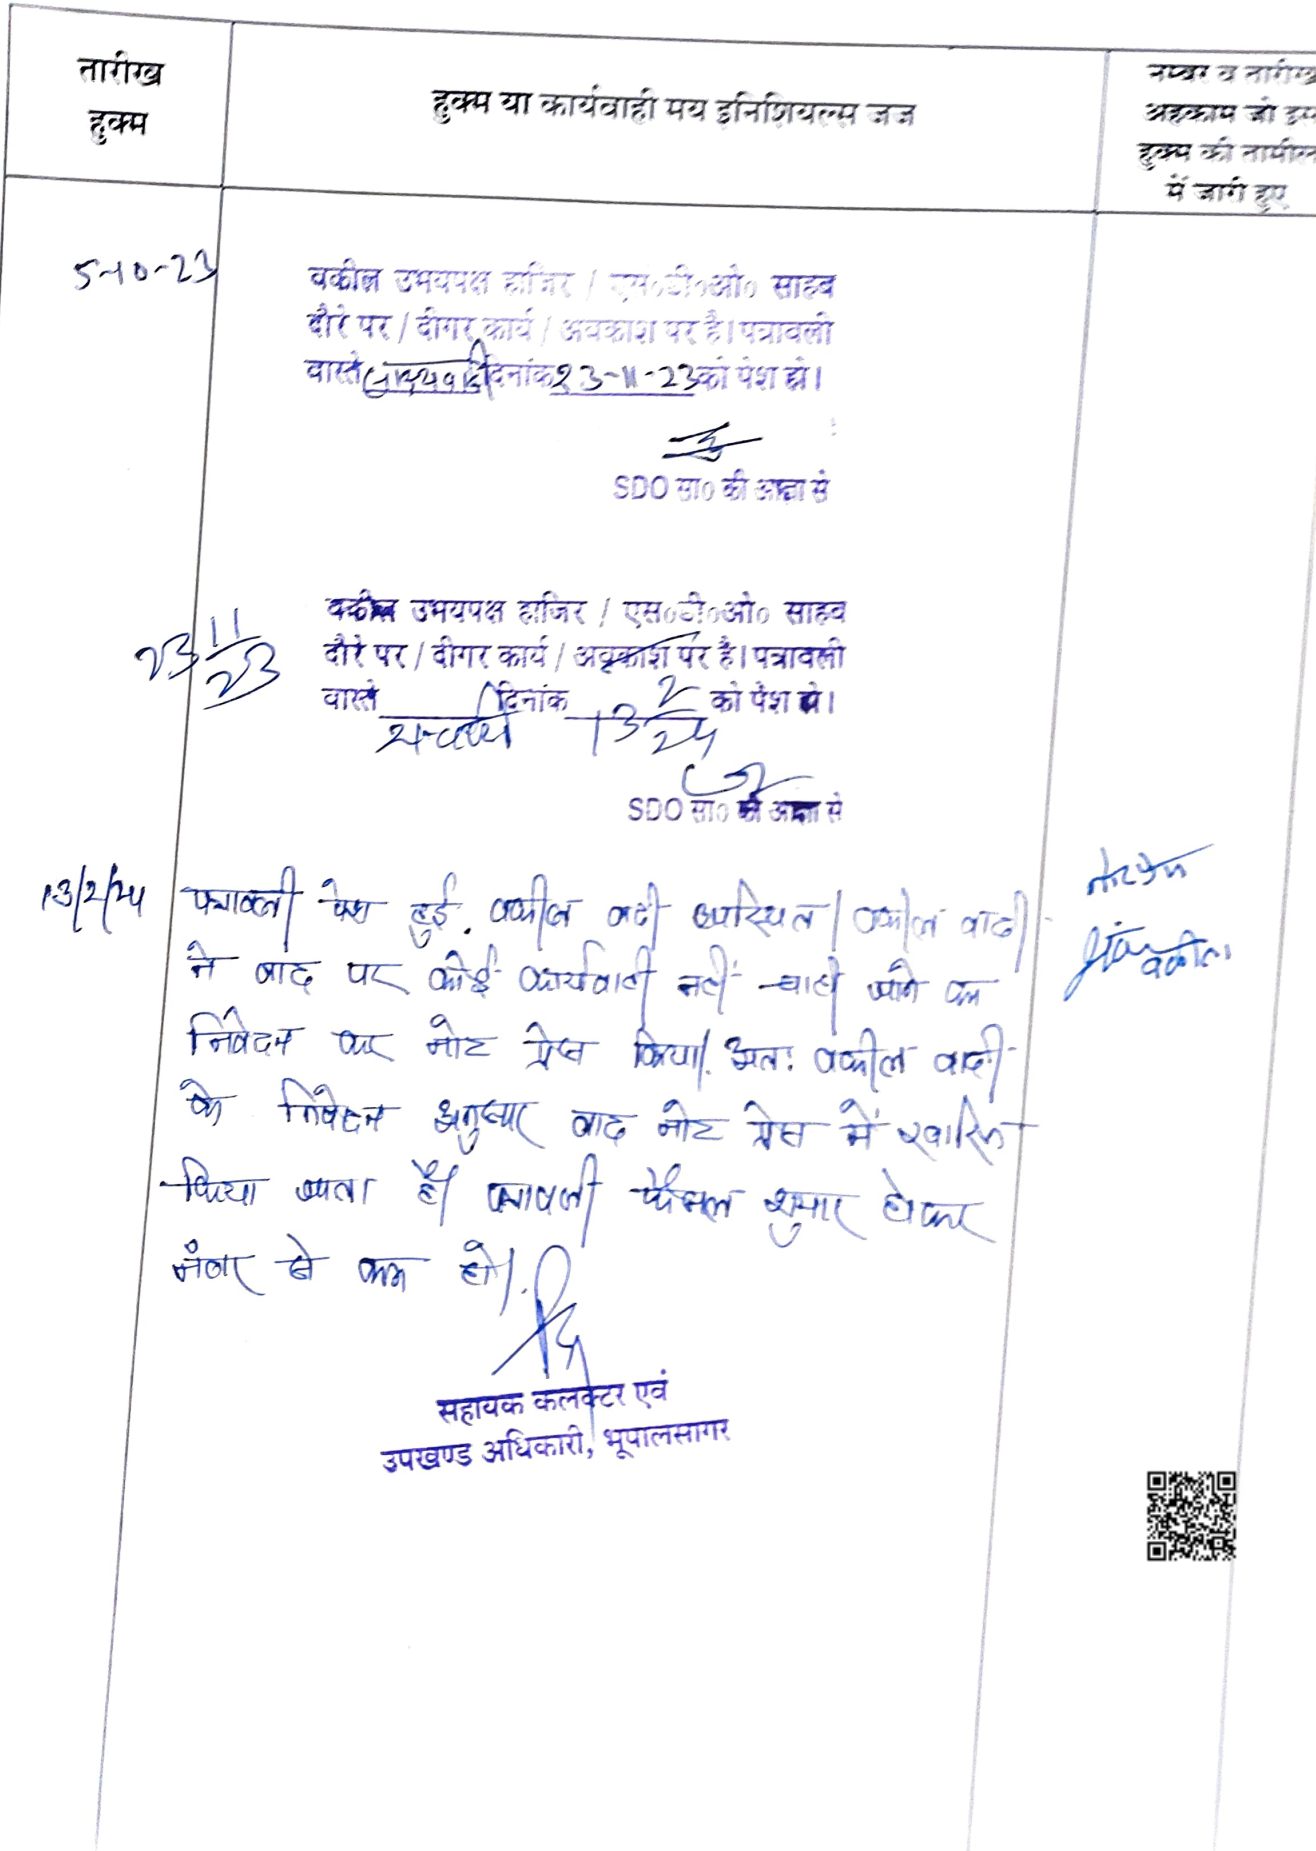 तारीख
हुक्म
हुक्म या कार्यवाही मय इनिशियल्स जज
नम्बर व तारीख
अहकाम जो इस
हुक्म की तामील
में जारी हुए
5-10-23
वकील उभयपक्ष हाजिर / एस०डी०ओ० साहब
दौरे पर / दीगर कार्य / अवकाश पर है। पत्रावली
वास्ते दिनांक 23-11-23 को पेश हो।
SDO सा० की आज्ञा से
23 11/23
वकील उभयपक्ष हाजिर / एस०डी०ओ० साहब
दौरे पर / दीगर कार्य / अवकाश पर है। पत्रावली
वास्ते दिनांक 13 2/24 को पेश हो।
SDO सा० की आज्ञा से
13/2/24 पत्रावली पेश हुई. वकील वादी उपस्थित। वकील वादी
ने वाद पर कोई कार्यवाही नहीं चाही जाने का
निवेदन कर नोट प्रेस किया। अतः वकील वादी
के निवेदन अनुसार वाद नोट प्रेस में खारिज
किया जाता है। पत्रावली फैसल शुमार होकर
नंबर से कम हो।
नोटप्रेस
वकील
सहायक कलक्टर एवं
उपखण्ड अधिकारी, भूपालसागर